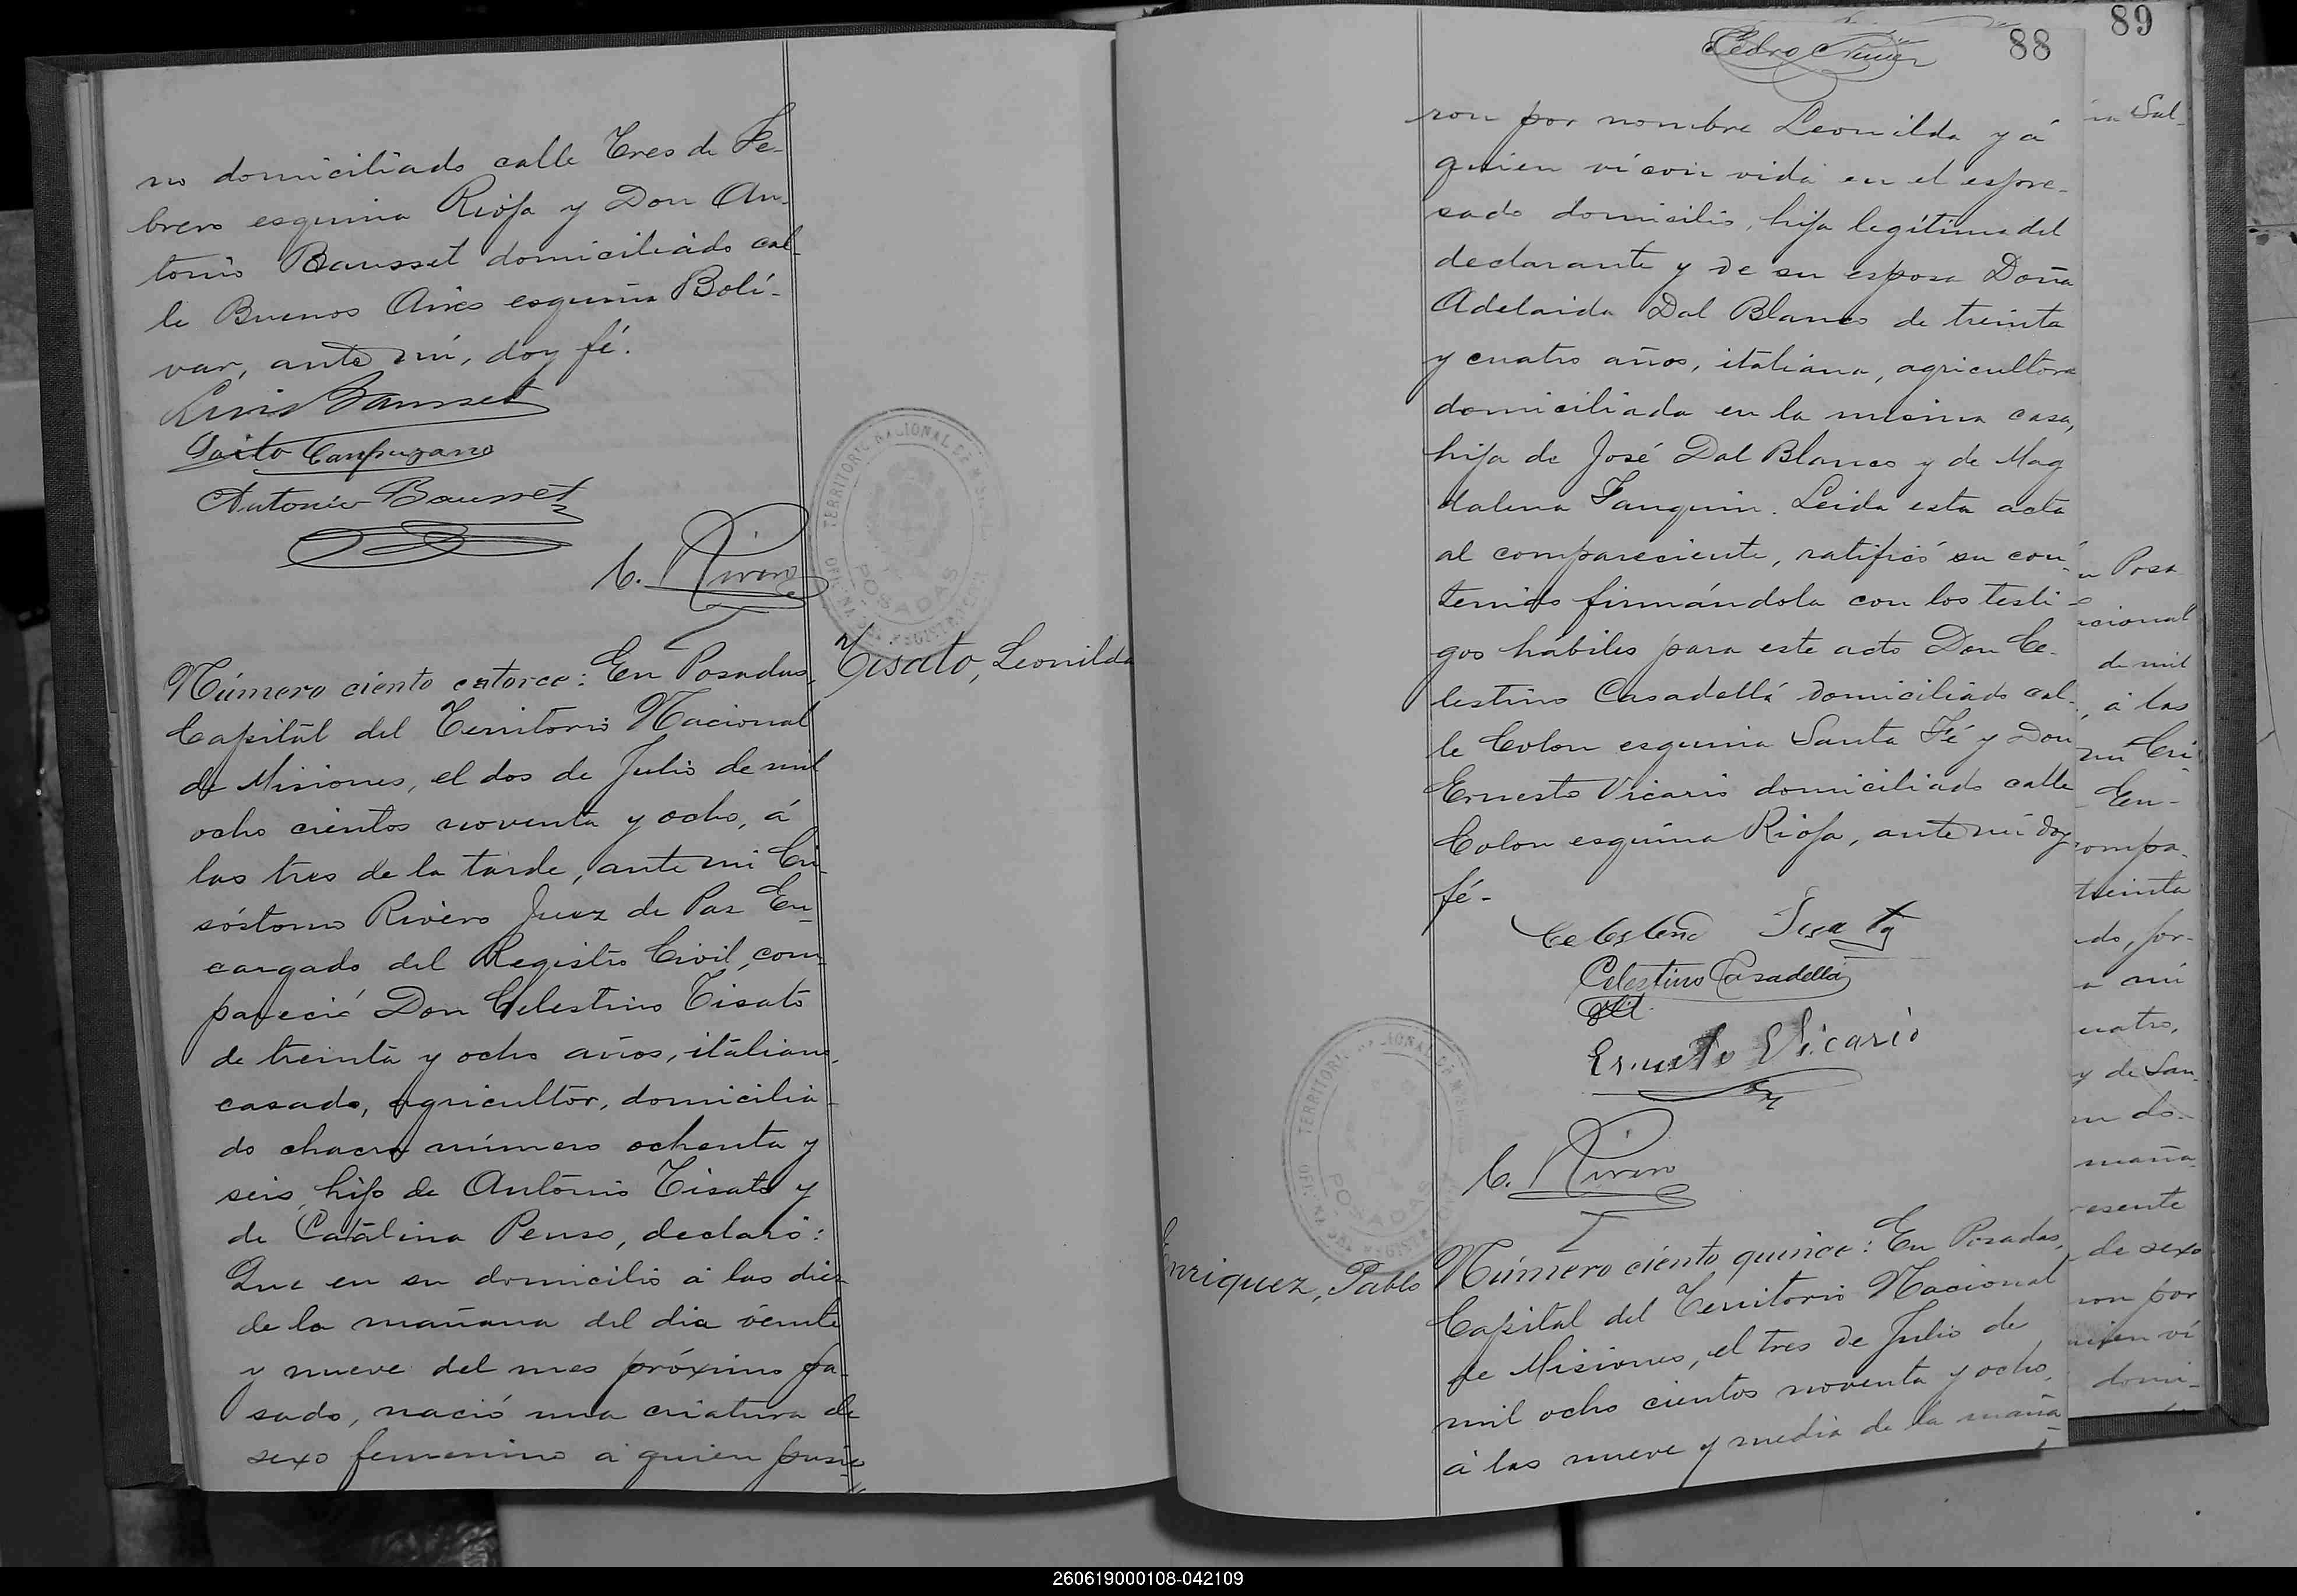 no domiciliado calle Tres de Fe-
brero esquina Rioja y Don An-
tonio Bausset domiciliado cal-
le Buenos Aires esquina Bolí-
var, ante mí, doy fé.
Luis Bausset
Campuzano
Antonio Bausset
C. Rivero
TERRITORIO NACIONAL DE MISIONES
POSADAS
Número ciento catorce: En Posadas,
Tisato, Leonilda
Capital del Territorio Nacional
de Misiones, el dos de Julio de mil
ocho cientos noventa y ocho, á
las tres de la tarde, ante mi Cri-
sóstomo Rivero Juez de Paz En-
cargado del Registro Civil, com-
pareció Don Celestino Tisato
de treinta y ocho años, italiano,
casado, agricultor, domicilia-
do chacra número ochenta y
seis, hijo de Antonio Tisato y
de Catalina Penso, declaró:
Que en su domicilio á las diez
de la mañana del dia veinte
y nueve del mes próximo pa-
sado, nació una criatura de
sexo femenino á quien pusie-
89
88
Pedro
ron por nombre Leonilda y á
quien ví con vida en el espre-
sado domicilio, hija legítima del
declarante y de su esposa Doña
Adelaida Dal Blanco de treinta
y cuatro años, italiana, agricultora
domiciliada en la misma casa,
hija de José Dal Blanco y de Mag
dalena Fanguin. Leida esta acta
al compareciente, ratificó su con-
tenido firmándola con los testi-
gos hábiles para este acto Don Ce-
lestino Casadellá domiciliado cal-
le Colon esquina Santa Fé y Don
Ernesto Vicario domiciliado calle
Colon esquina Rioja, ante mí doy
fé-
Celestino Casadellá
Ernesto Vicario
C. Rivero
TERRITORIO NACIONAL DE MISIONES
POSADAS
Enriquez, Pablo
Número ciento quince: En Posadas,
Capital del Territorio Nacional
de Misiones, el tres de Julio de
mil ocho cientos noventa y ocho,
á las nueve y media de la maña-
260619000108-042109